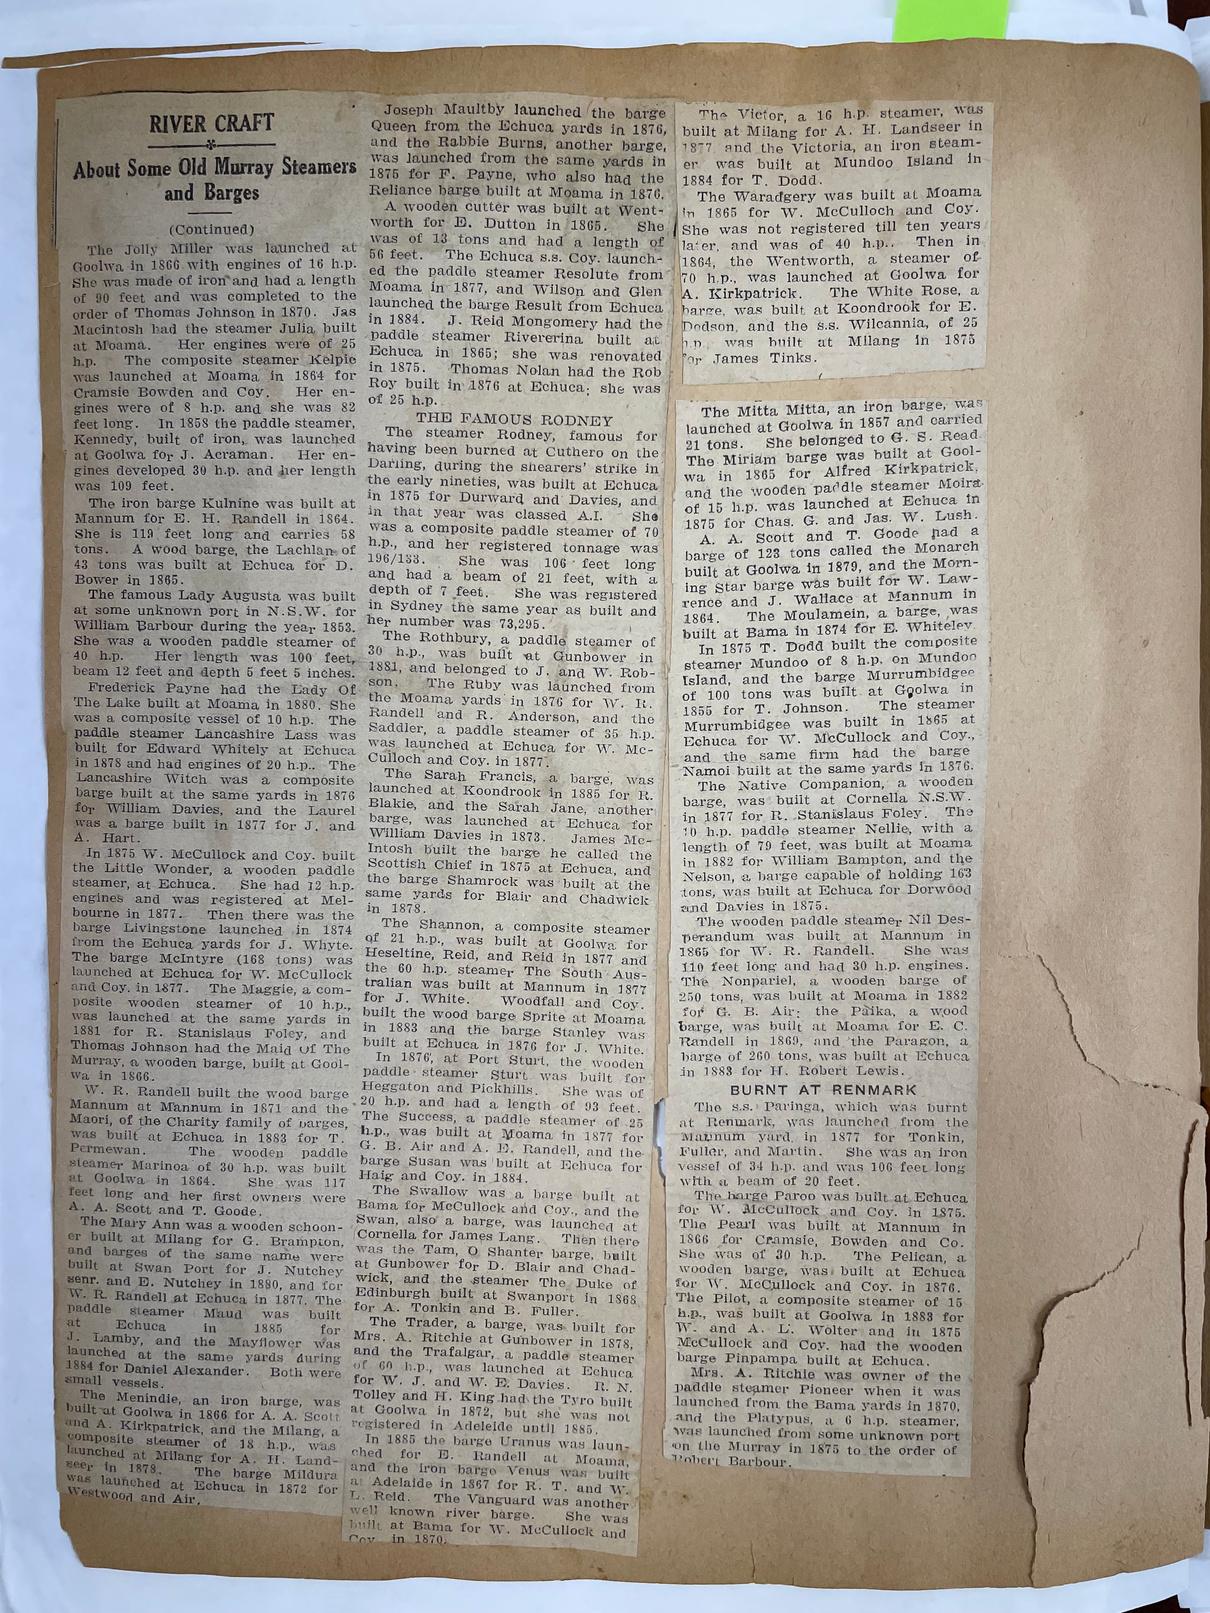 RIVER CRAFT
About Some Old Murray Steamers
and Barges
(Continued)
The Jolly Miller was launched at
Goolwa in 1866 with engines of 16 h.p.
She was made of iron and had a length
of 90 feet and was completed to the
order of Thomas Johnson in 1870. Jas
Macintosh had the steamer Julia built
at Moama. Her engines were of 25
h.p. The composite steamer Kelpie
was launched at Moama in 1864 for
Cramsie Bowden and Coy. Her en-
gines were of 8 h.p. and she was 82
feet long. In 1858 the paddle steamer,
Kennedy, built of iron, was launched
at Goolwa for J. Acraman. Her en-
gines developed 30 h.p. and her length
was 109 feet.
The iron barge Kulnine was built at
Mannum for E. H. Randell in 1864.
She is 119 feet long and carries 58
tons. A wood barge, the Lachlan of
43 tons was built at Echuca for D.
Bower in 1865.
The famous Lady Augusta was built
at some unknown port in N.S.W. for
William Barbour during the year 1853.
She was a wooden paddle steamer of
40 h.p. Her length was 100 feet,
beam 12 feet and depth 5 feet 5 inches.
Frederick Payne had the Lady Of
The Lake built at Moama in 1880. She
was a composite vessel of 10 h.p. The
paddle steamer Lancashire Lass was
built for Edward Whitely at Echuca
in 1878 and had engines of 20 h.p.. The
Lancashire Witch was a composite
barge built at the same yards in 1876
for William Davies, and the Laurel
was a barge built in 1877 for J. and
A. Hart.
In 1875 W. McCullock and Coy. built
the Little Wonder, a wooden paddle
steamer, at Echuca. She had 12 h.p.
engines and was registered at Mel-
bourne in 1877. Then there was the
barge Livingstone launched in 1874
from the Echuca yards for J. Whyte.
The barge McIntyre (168 tons) was
launched at Echuca for W. McCullock
and Coy. in 1877. The Maggie, a com-
posite wooden steamer of 10 h.p.,
was launched at the same yards in
1881 for R. Stanislaus Foley, and
Thomas Johnson had the Maid Of The
Murray, a wooden barge, built at Gool-
wa in 1866.
W. R. Randell built the wood barge
Mannum at Mannum in 1871 and the
Maori, of the Charity family of barges,
was built at Echuca in 1883 for T.
Permewan. The wooden paddle
steamer Marinoa of 30 h.p. was built
at Goolwa in 1864. She was 117
feet long and her first owners were
A. A. Scott and T. Goode.
The Mary Ann was a wooden schoon-
er built at Milang for G. Brampton,
and barges of the same name were
built at Swan Port for J. Nutchey
senr. and E. Nutchey in 1880, and for
W. R. Randell at Echuca in 1877. The
paddle steamer Maud was built
at Echuca in 1885 for
J. Lamby, and the Mayflower was
launched at the same yards during
1884 for Daniel Alexander. Both were
small vessels.
The Menindie, an iron barge, was
built at Goolwa in 1866 for A. A. Scott
and A. Kirkpatrick, and the Milang, a
composite steamer of 18 h.p., was
launched at Milang for A. H. Land-
seer in 1878. The barge Mildura
was launched at Echuca in 1872 for
Westwood and Air.
Joseph Maultby launched the barge
Queen from the Echuca yards in 1876,
and the Rabbie Burns, another barge,
was launched from the same yards in
1875 for F. Payne, who also had the
Reliance barge built at Moama in 1876.
A wooden cutter was built at Went-
worth for E. Dutton in 1865. She
was of 13 tons and had a length of
56 feet. The Echuca s.s. Coy. launch-
ed the paddle steamer Resolute from
Moama in 1877, and Wilson and Glen
launched the barge Result from Echuca
in 1884. J. Reid Mongomery had the
paddle steamer Rivererina built at
Echuca in 1865; she was renovated
in 1875. Thomas Nolan had the Rob
Roy built in 1876 at Echuca; she was
of 25 h.p.
THE FAMOUS RODNEY
The steamer Rodney, famous for
having been burned at Cuthero on the
Darling, during the shearers' strike in
the early nineties, was built at Echuca
in 1875 for Durward and Davies, and
in that year was classed A.I. She
was a composite paddle steamer of 70
h.p., and her registered tonnage was
196/133. She was 106 feet long
and had a beam of 21 feet, with a
depth of 7 feet. She was registered
in Sydney the same year as built and
her number was 73,295.
The Rothbury, a paddle steamer of
30 h.p., was built at Gunbower in
1881, and belonged to J. and W. Rob-
son. The Ruby was launched from
the Moama yards in 1876 for W. R.
Randell and R. Anderson, and the
Saddler, a paddle steamer of 35 h.p.
was launched at Echuca for W. Mc-
Culloch and Coy. in 1877.
The Sarah Francis, a barge, was
launched at Koondrook in 1885 for R.
Blakie, and the Sarah Jane, another
barge, was launched at Echuca for
William Davies in 1873. James Mc-
Intosh built the barge he called the
Scottish Chief in 1875 at Echuca, and
the barge Shamrock was built at the
same yards for Blair and Chadwick
in 1878.
The Shannon, a composite steamer
of 21 h.p., was built at Goolwa for
Heseltine, Reid, and Reid in 1877 and
the 60 h.p. steamer The South Aus-
tralian was built at Mannum in 1877
for J. White. Woodfall and Coy.
built the wood barge Sprite at Moama
in 1883 and the barge Stanley was
built at Echuca in 1876 for J. White.
In 1876, at Port Sturt, the wooden
paddle steamer Sturt was built for
Heggaton and Pickhills. She was of
20 h.p. and had a length of 93 feet.
The Success, a paddle steamer of 25
h.p., was built at Moama in 1877 for
G. B. Air and A. E. Randell, and the
barge Susan was built at Echuca for
Haig and Coy. in 1884.
The Swallow was a barge built at
Bama for McCullock and Coy., and the
Swan, also a barge, was launched at
Cornella for James Lang. Then there
was the Tam, O Shanter barge, built
at Gunbower for D. Blair and Chad-
wick, and the steamer The Duke of
Edinburgh built at Swanport in 1868
for A. Tonkin and B. Fuller.
The Trader, a barge, was built for
Mrs. A. Ritchie at Gunbower in 1878,
and the Trafalgar, a paddle steamer
of 60 h.p., was launched at Echuca
for W. J. and W. E. Davies. R. N.
Tolley and H. King had the Tyro built
at Goolwa in 1872, but she was not
registered in Adelaide until 1885.
In 1885 the barge Uranus was laun-
ched for E. Randell at Moama,
and the iron barge Venus was built
at Adelaide in 1867 for R. T. and W.
L. Reid. The Vanguard was another
well known river barge. She was
built at Bama for W. McCullock and
Coy. in 1870.
The Victor, a 16 h.p. steamer, was
built at Milang for A. H. Landseer in
1877 and the Victoria, an iron steam-
er was built at Mundoo Island in
1884 for T. Dodd.
The Waradgery was built at Moama
in 1865 for W. McCulloch and Coy.
She was not registered till ten years
later, and was of 40 h.p.. Then in
1864, the Wentworth, a steamer of
70 h.p., was launched at Goolwa for
A. Kirkpatrick. The White Rose, a
barge, was built at Koondrook for E.
Dodson, and the s.s. Wilcannia, of 25
h.p. was built at Milang in 1875
for James Tinks.
The Mitta Mitta, an iron barge, was
launched at Goolwa in 1857 and carried
21 tons. She belonged to G. S. Read.
The Miriam barge was built at Gool-
wa in 1865 for Alfred Kirkpatrick,
and the wooden paddle steamer Moira
of 15 h.p. was launched at Echuca in
1875 for Chas. G. and Jas. W. Lush.
A. A. Scott and T. Goode had a
barge of 123 tons called the Monarch
built at Goolwa in 1879, and the Morn-
ing Star barge was built for W. Law-
rence and J. Wallace at Mannum in
1864. The Moulamein, a barge, was
built at Bama in 1874 for E. Whiteley.
In 1875 T. Dodd built the composite
steamer Mundoo of 8 h.p. on Mundoo
Island, and the barge Murrumbidgee
of 100 tons was built at Goolwa in
1855 for T. Johnson. The steamer
Murrumbidgee was built in 1865 at
Echuca for W. McCullock and Coy.,
and the same firm had the barge
Namoi built at the same yards in 1876.
The Native Companion, a wooden
barge, was built at Cornella N.S.W.
in 1877 for R. Stanislaus Foley. The
10 h.p. paddle steamer Nellie, with a
length of 79 feet, was built at Moama
in 1882 for William Bampton, and the
Nelson, a barge capable of holding 163
tons, was built at Echuca for Dorwood
and Davies in 1875.
The wooden paddle steamer Nil Des-
perandum was built at Mannum in
1865 for W. R. Randell. She was
110 feet long and had 30 h.p. engines.
The Nonpariel, a wooden barge of
250 tons, was built at Moama in 1882
for G. B. Air; the Paika, a wood
barge, was built at Moama for E. C.
Randell in 1869, and the Paragon, a
barge of 260 tons, was built at Echuca
in 1883 for H. Robert Lewis.
BURNT AT RENMARK
The s.s. Paringa, which was burnt
at Renmark, was launched from the
Mannum yard in 1877 for Tonkin,
Fuller, and Martin. She was an iron
vessel of 34 h.p. and was 106 feet long
with a beam of 20 feet.
The barge Paroo was built at Echuca
for W. McCullock and Coy. in 1875.
The Pearl was built at Mannum in
1866 for Cramsie, Bowden and Co.
She was of 30 h.p. The Pelican, a
wooden barge, was built at Echuca
for W. McCullock and Coy. in 1876.
The Pilot, a composite steamer of 15
h.p., was built at Goolwa in 1883 for
W. and A. L. Wolter and in 1875
McCullock and Coy. had the wooden
barge Pinpampa built at Echuca.
Mrs. A. Ritchie was owner of the
paddle steamer Pioneer when it was
launched from the Bama yards in 1870,
and the Platypus, a 6 h.p. steamer,
was launched from some unknown port
on the Murray in 1875 to the order of
Robert Barbour.